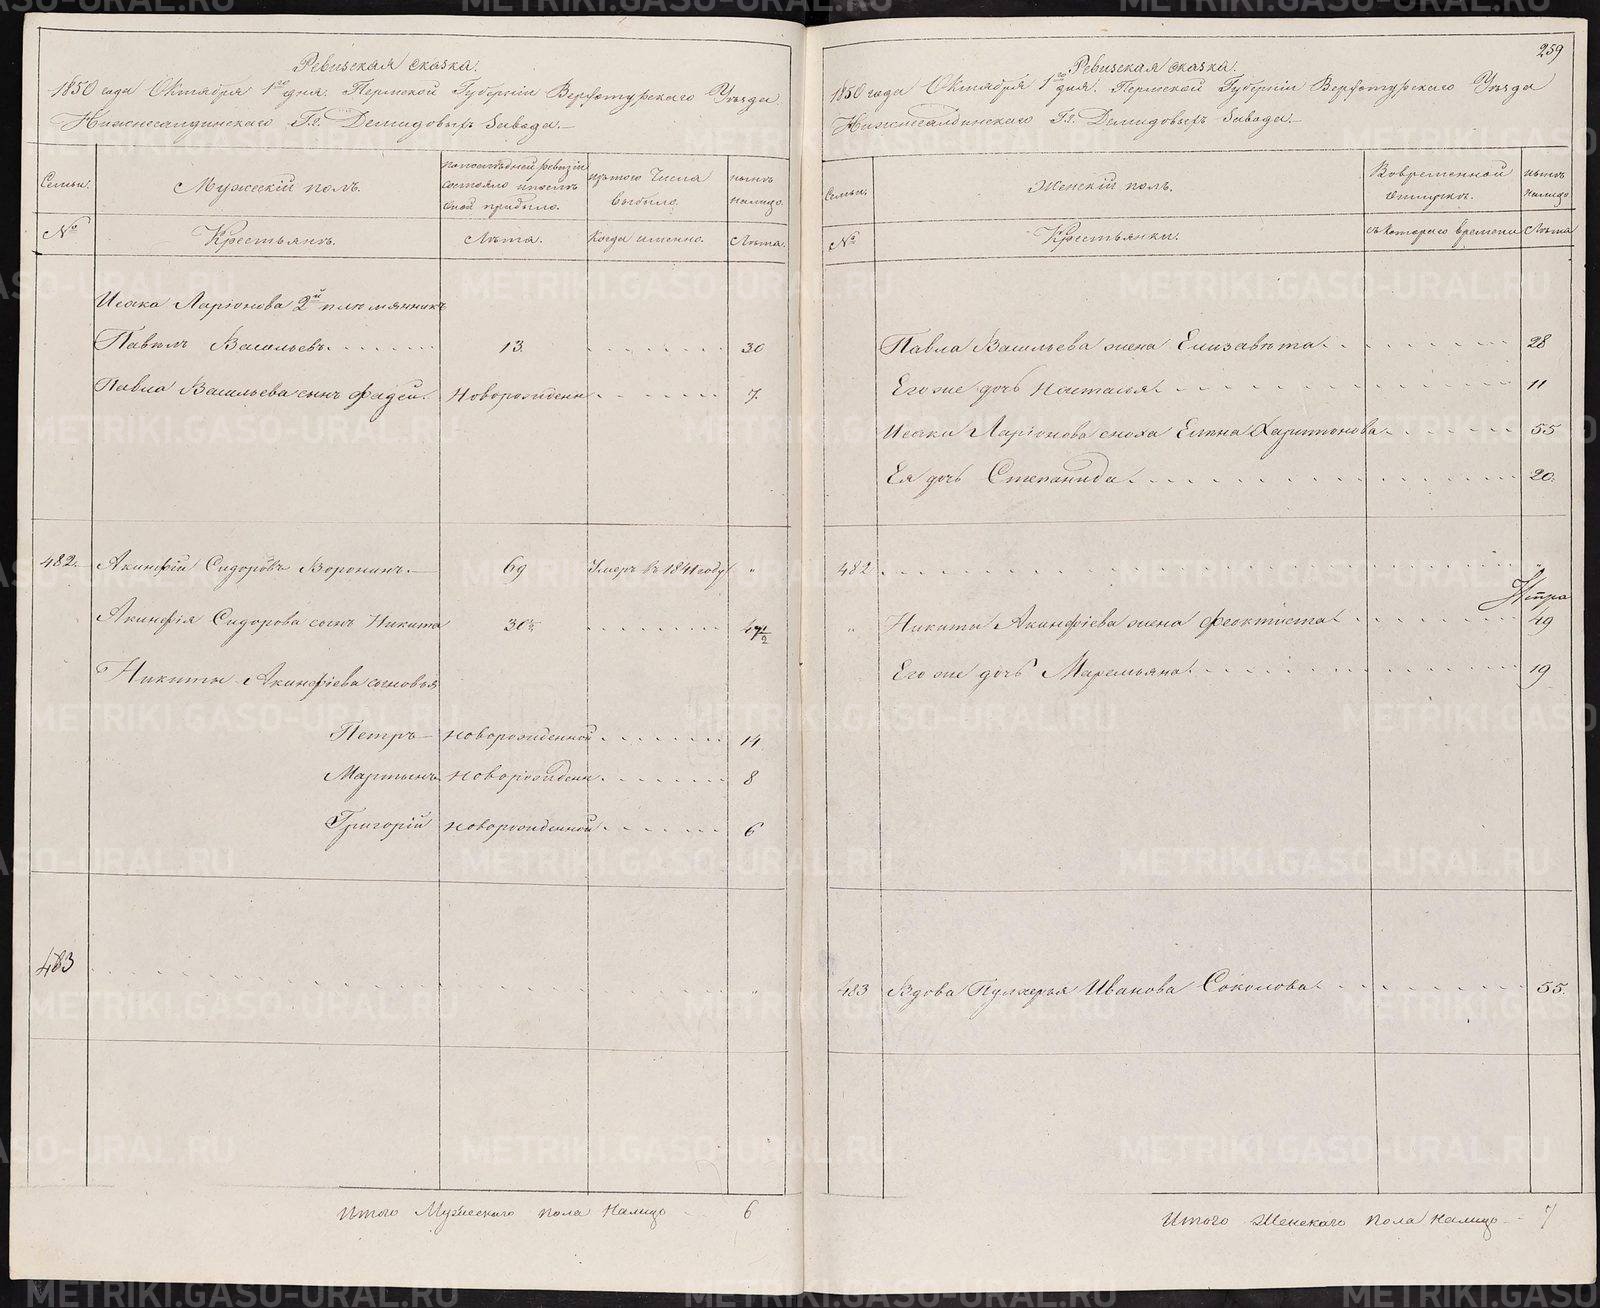 Ревизская сказка.
1850 года Октября 1го дня. Пермской Губернiи Верхотурскаго Уѣзда
Нижнесалдинскаго Гг. Демидовыхъ Завода.
Семьи.
Мужескiй полъ.
По послѣдней ревизiи состояло и послѣ оной прибыло.
Изъ того числа выбыло.
Нынѣ налицо.
№
Крестьянъ.
Лѣта.
Когда именно.
Лѣта.
Исака Ларiонова 2й племянникъ
Павелъ Васильевъ 13. 30
Павла Васильева сынъ Фадей. Новорожденн 7.
482. Акинфiй Сидоровъ Воронинъ. 69 Умеръ въ 1841 году "
Акинфiя Сидорова сынъ Никита 30½ 47½
Никиты Акинфiева сыновья
Петръ новорожденной 14
Мартынъ новорожденн 8
Григорiй новорожденной 6
483 "
Итого Мужескаго пола налицо 6
259
Ревизская сказка.
1850 года Октября 1го дня. Пермской Губернiи Верхотурскаго Уѣзда
Нижнесалдинскаго Гг. Демидовыхъ Завода.
Семьи.
Женскiй полъ.
Во временной отлучкѣ.
Нынѣ налицо
№
Крестьянки.
Съ котораго времени
Лѣта
Павла Васильева жена Елизавѣта 28
Его же дочь Наталья 11
Исака Ларiонова сноха Елена Харитонова 55
Ея дочь Степанида 20.
482 "
" Никиты Акинфiева жена Феоктиста 49
Его же дочь Маремьяна 19
483 Вдова Пулхерья Иванова Соколова 55.
Итого Женскаго пола налицо 7
METRIKI.GASO-URAL.RU